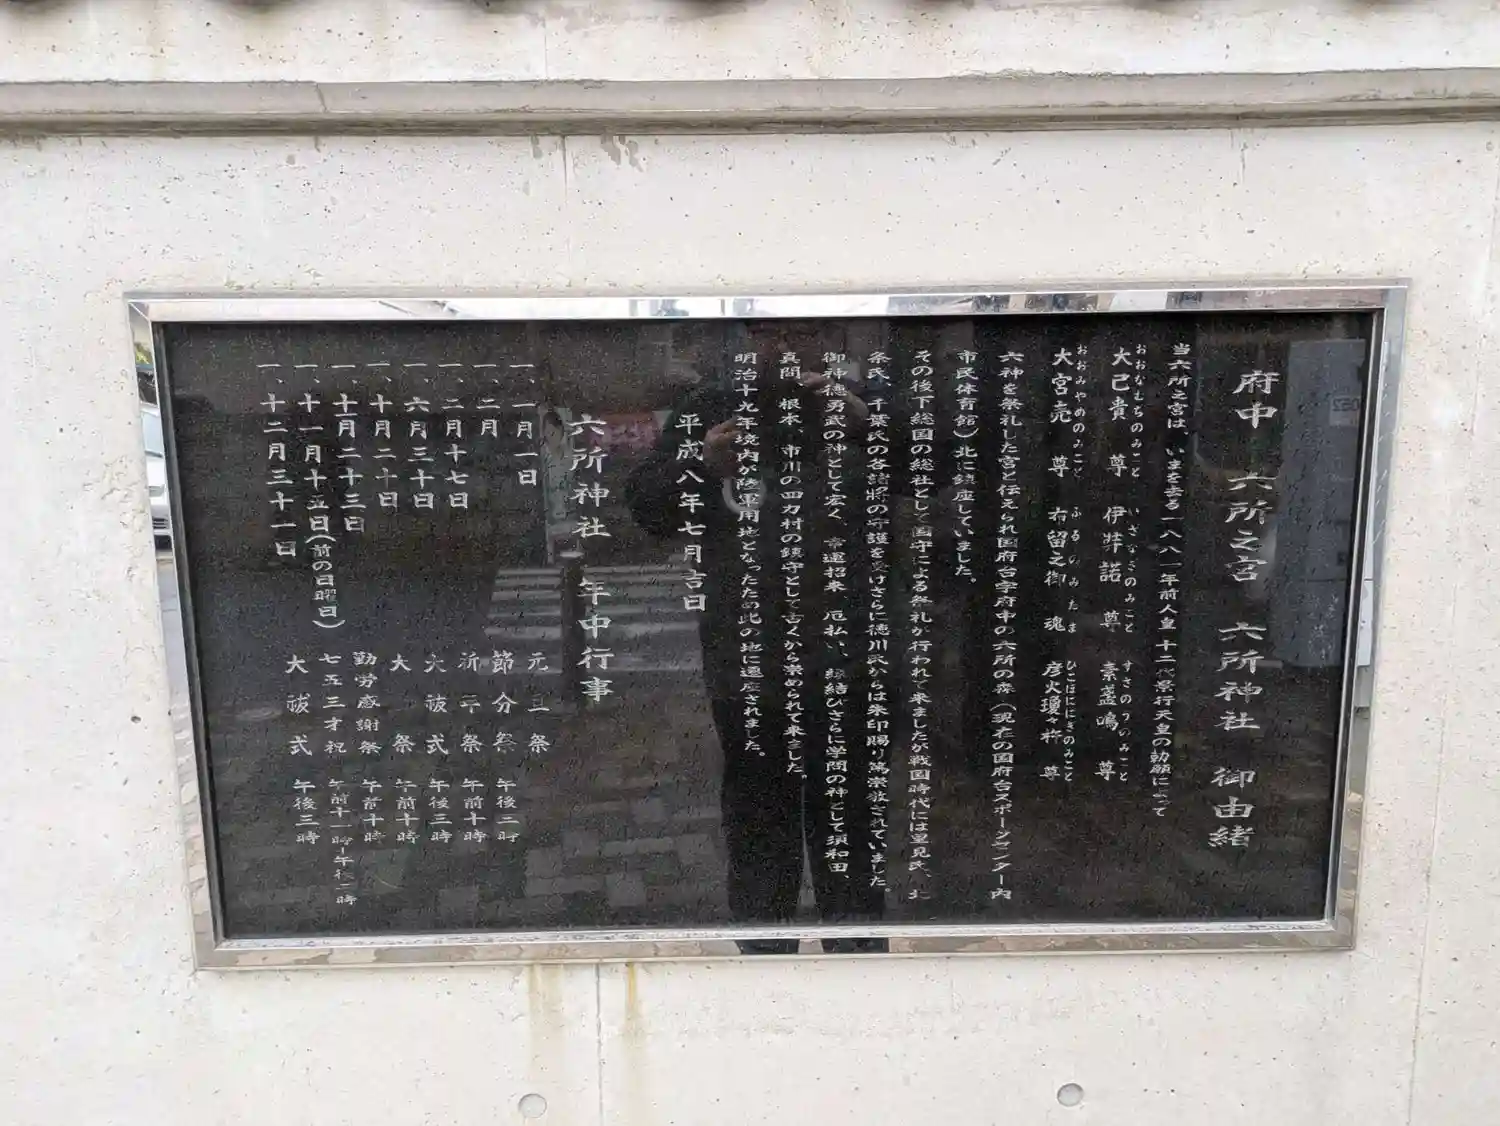 府中 六所之宮 六所神社 御由緒
当六所之宮は、いまを去る一八八一年前人皇十二代景行天皇の勅願によって
おおなむちのみこと いざなぎのみこと すさのうのみこと
大己貴尊 伊弉諾尊 素盞嗚尊
おおみやめのみこと ふるのみたま ひこほににぎのみこと
大宮売尊 布留之御魂 彦火瓊々杵尊
六神を祭礼した宮と伝えられ国府台字府中の六所の森(現在の国府台スポーツセンター内
市民体育館)北に鎮座していました。
その後下総国の総社として国守による祭礼が行われて来ましたが戦国時代には里見氏、北
条氏、千葉氏の各諸将の守護を受けさらに徳川氏からは朱印賜り篤崇敬されていました。
御神徳勇武の神として宏く、幸運招来、厄払い、縁結びさらに学問の神として須和田、
真間、根本、市川の四カ村の鎮守として古くから崇められて来ました。
明治十九年境内が陸軍用地となったため此の地に遷座されました。
平成八年七月吉日
六所神社 年中行事
一、一月一日 元旦祭
一、二月 節分祭 午後三時
一、二月十七日 祈年祭 午前十時
一、六月三十日 大祓式 午後三時
一、十月二十日 大祭 午前十時
一、十一月二十三日 勤労感謝祭 午前十時
一、十一月十五日(前の日曜日) 七五三才祝 午前十一時~午後二時
一、十二月三十一日 大祓式 午後三時